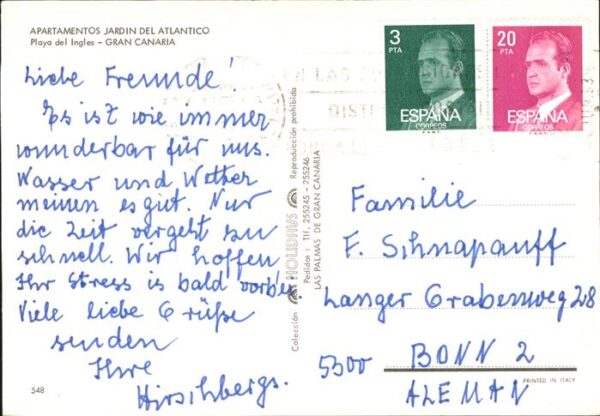 APARTAMENTOS JARDIN DEL ATLANTICO
Playa del Ingles - GRAN CANARIA
Liebe Freunde!
Es ist wie immer
wunderbar für uns.
Wasser und Wetter
meinen es gut. Nur
die Zeit vergeht zu
schnell. Wir hoffen
Ihr Stress is bald vorbei.
Viele liebe Grüße
senden
Ihre
Hirschbergs.
548
Colección HOLIDAYS Reproducción prohibida
Pedidos: Tlf. 255245 - 255246
LAS PALMAS DE GRAN CANARIA
3
PTA
ESPAÑA
CORREOS
20
PTA
ESPAÑA
CORREOS
EN LAS
Familie
F. Schnapauff
Langer Grabenweg 28
5300 BONN 2
ALEMAN
PRINTED IN ITALY